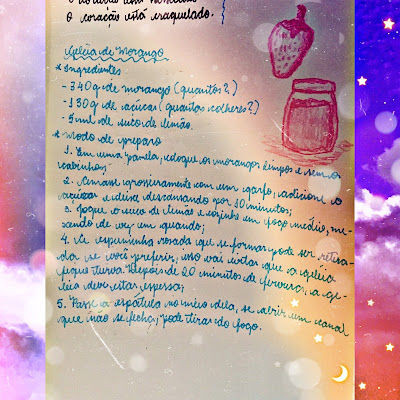 o coração está craquelado.
Geléia de Morango
* Ingredientes
- 340g de morango (quantos?)
- 130g de açúcar (quantas colheres?)
- 5ml de suco de limão.
* modo de preparo
1. Em uma panela, coloque os morangos limpos e sem os
cabinhos;
2. Amasse grosseiramente com um garfo, adicione o
açúcar e deixe descansando por 30 minutos;
3. Jogue o suco de limão e cozinhe em fogo médio, me-
xendo de vez em quando;
4. A espuminha rosada que se formar pode ser retira-
da se você preferir, isso vai evitar que a geléia
fique turva. Depois de 20 minutos de fervura, a ge-
leia deve estar espessa;
5. Passe a espátula no meio dela, se abrir um canal
que não se fecha, pode tirar do fogo.